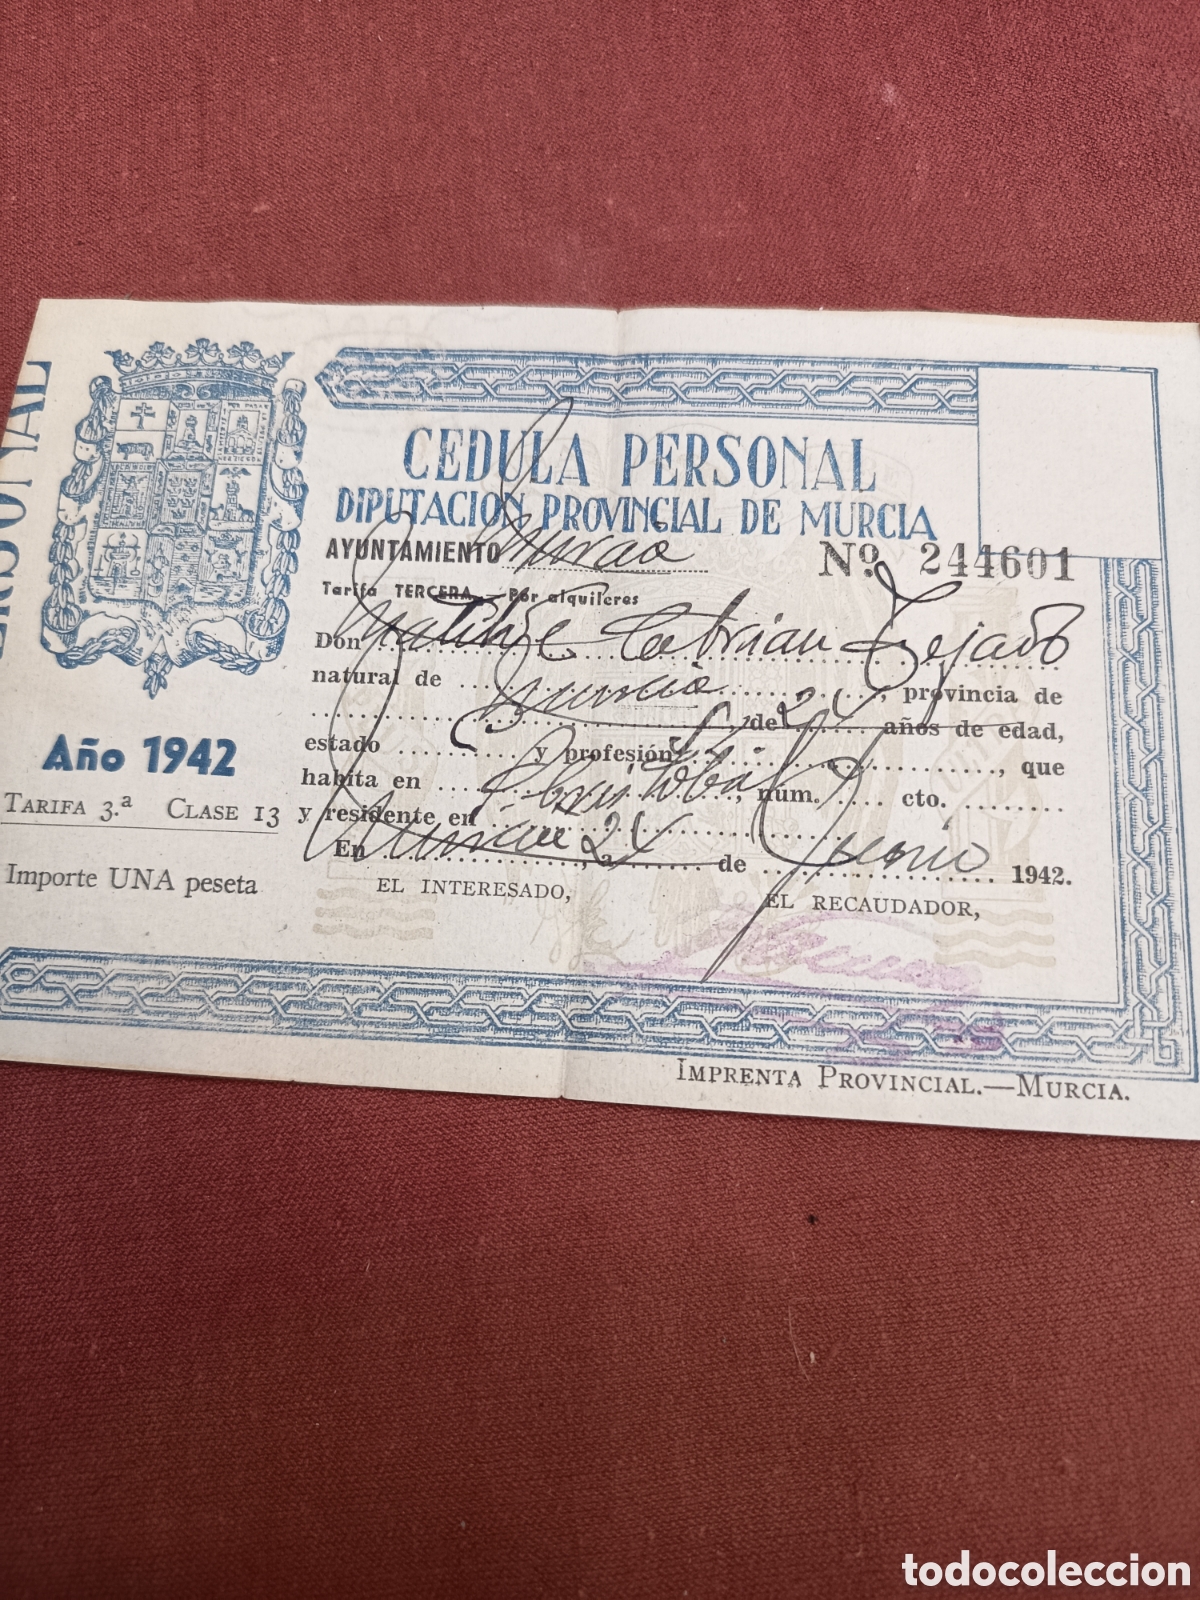 Año 1942
TARIFA 3.ª CLASE 13
Importe UNA peseta
CEDULA PERSONAL
DIPUTACION PROVINCIAL DE MURCIA
AYUNTAMIENTO Murcia Nº. 244601
Tarifa TERCERA.—Por alquileres
Don Matilde Cebrian Tejado
natural de Murcia, provincia de
de 24 años de edad,
estado y profesión, que
habita en Cristobal, núm. 7 cto.
y residente en
En Murcia, a 24 de Junio 1942.
EL INTERESADO,
EL RECAUDADOR,
IMPRENTA PROVINCIAL.—MURCIA.
todocoleccion